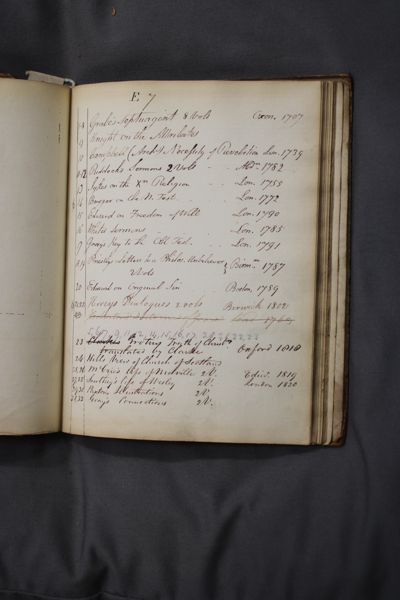 E. 7
1-8 Grabe's Septuagint 8 Vols Oxon. 1707
9 Knight on the Attributes
10 Campbell (Archd) Necessity of Revelation Lon. 1739
11.12 Riddoch's Sermons 2 Vols Abn. 1782
3 Sykes on the Xn Religion Lon. 1755
4 on the N. Test. Lon. 1772
15 Edward on Freedom of Will Lon. 1790
16 Sermons Lon. 1785
17 Grays Key to the Old Test. Lon. 1791
Priestley's Letters to a Philos. Unbeliever Birm. 1787
2 Vols
20 Edward on Original Sin Boston 1789
Hervey's Dialogues 2 vols Berwick 1802
23 Grotius Truth of Christy Oxford 1818
translated by Clarke
24 Hills View of Church of Scotland
McCrie's Life of Melville 2 V. Edinr. 1819
Southey's Life of Wesley 2 V. London 1820
Illustrations 2 V.
Gray's Connections 2 V.